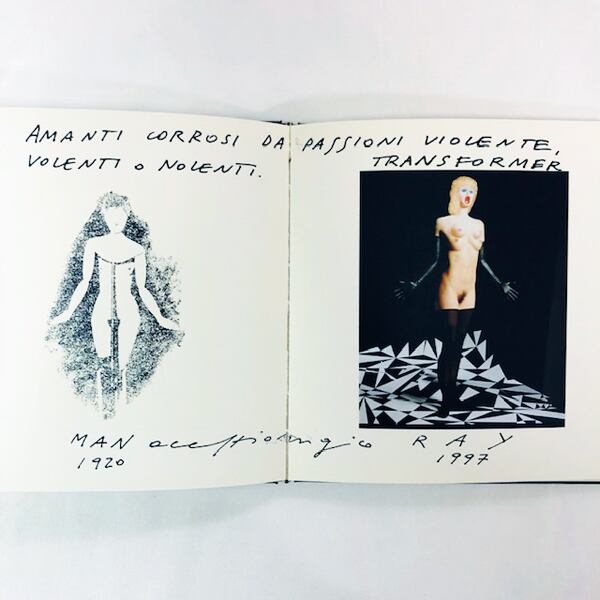 AMANTI CORROSI DA PASSIONI VIOLENTE,
VOLENTI O NOLENTI. TRANSFORMER
MAN RAY
1920 1997